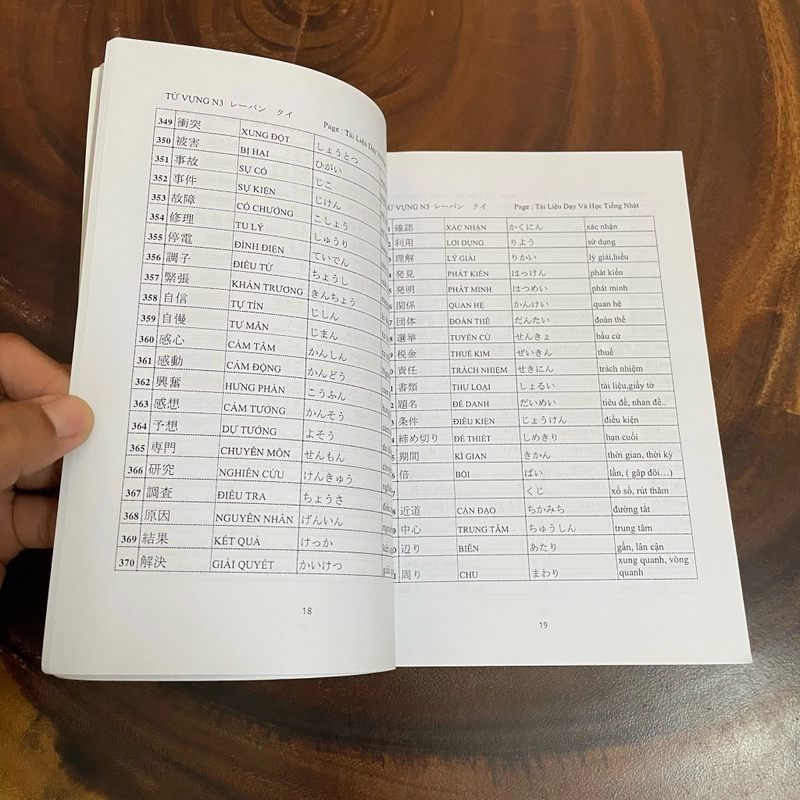 TỪ VỰNG N3 レーバン クイ Page : Tài Liệu Dạy
349 衝突 XUNG ĐỘT しょうとつ
350 被害 BỊ HẠI ひがい
351 事故 SỰ CỐ じこ
352 事件 SỰ KIỆN じけん
353 故障 CỐ CHƯỚNG こしょう
354 修理 TU LÝ しゅうり
355 停電 ĐÌNH ĐIỆN ていでん
356 調子 ĐIỀU TỬ ちょうし
357 緊張 KHẨN TRƯƠNG きんちょう
358 自信 TỰ TÍN じしん
359 自慢 TỰ MÃN じまん
360 感心 CẢM TÂM かんしん
361 感動 CẢM ĐỘNG かんどう
362 興奮 HƯNG PHẤN こうふん
363 感想 CẢM TƯỞNG かんそう
364 予想 DỰ TƯỞNG よそう
365 専門 CHUYÊN MÔN せんもん
366 研究 NGHIÊN CỨU けんきゅう
367 調査 ĐIỀU TRA ちょうさ
368 原因 NGUYÊN NHÂN げんいん
369 結果 KẾT QUẢ けっか
370 解決 GIẢI QUYẾT かいけつ
18
TỪ VỰNG N3 レーバン クイ Page : Tài Liệu Dạy Và Học Tiếng Nhật
確認 XÁC NHẬN かくにん xác nhận
利用 LỢI DỤNG りよう sử dụng
理解 LÝ GIẢI りかい lý giải,hiểu
発見 PHÁT KIẾN はっけん phát kiến
発明 PHÁT MINH はつめい phát minh
関係 QUAN HỆ かんけい quan hệ
団体 ĐOÀN THỂ だんたい đoàn thể
選挙 TUYỂN CỬ せんきょ bầu cử
税金 THUẾ KIM ぜいきん thuế
責任 TRÁCH NHIỆM せきにん trách nhiệm
書類 THƯ LOẠI しょるい tài liệu,giấy tờ
題名 ĐỀ DANH だいめい tiêu đề, nhan đề..
条件 ĐIỀU KIỆN じょうけん điều kiện
締め切り ĐẾ THIẾT しめきり hạn cuối
期間 KÌ GIAN きかん thời gian, thời kỳ
倍 BỘI ばい lần, ( gấp đôi…)
くじ xổ số, rút thăm
近道 CẬN ĐẠO ちかみち đường tắt
中心 TRUNG TÂM ちゅうしん trung tâm
辺り BIÊN あたり gần, lân cận
周り CHU まわり xung quanh, vòng
quanh
19